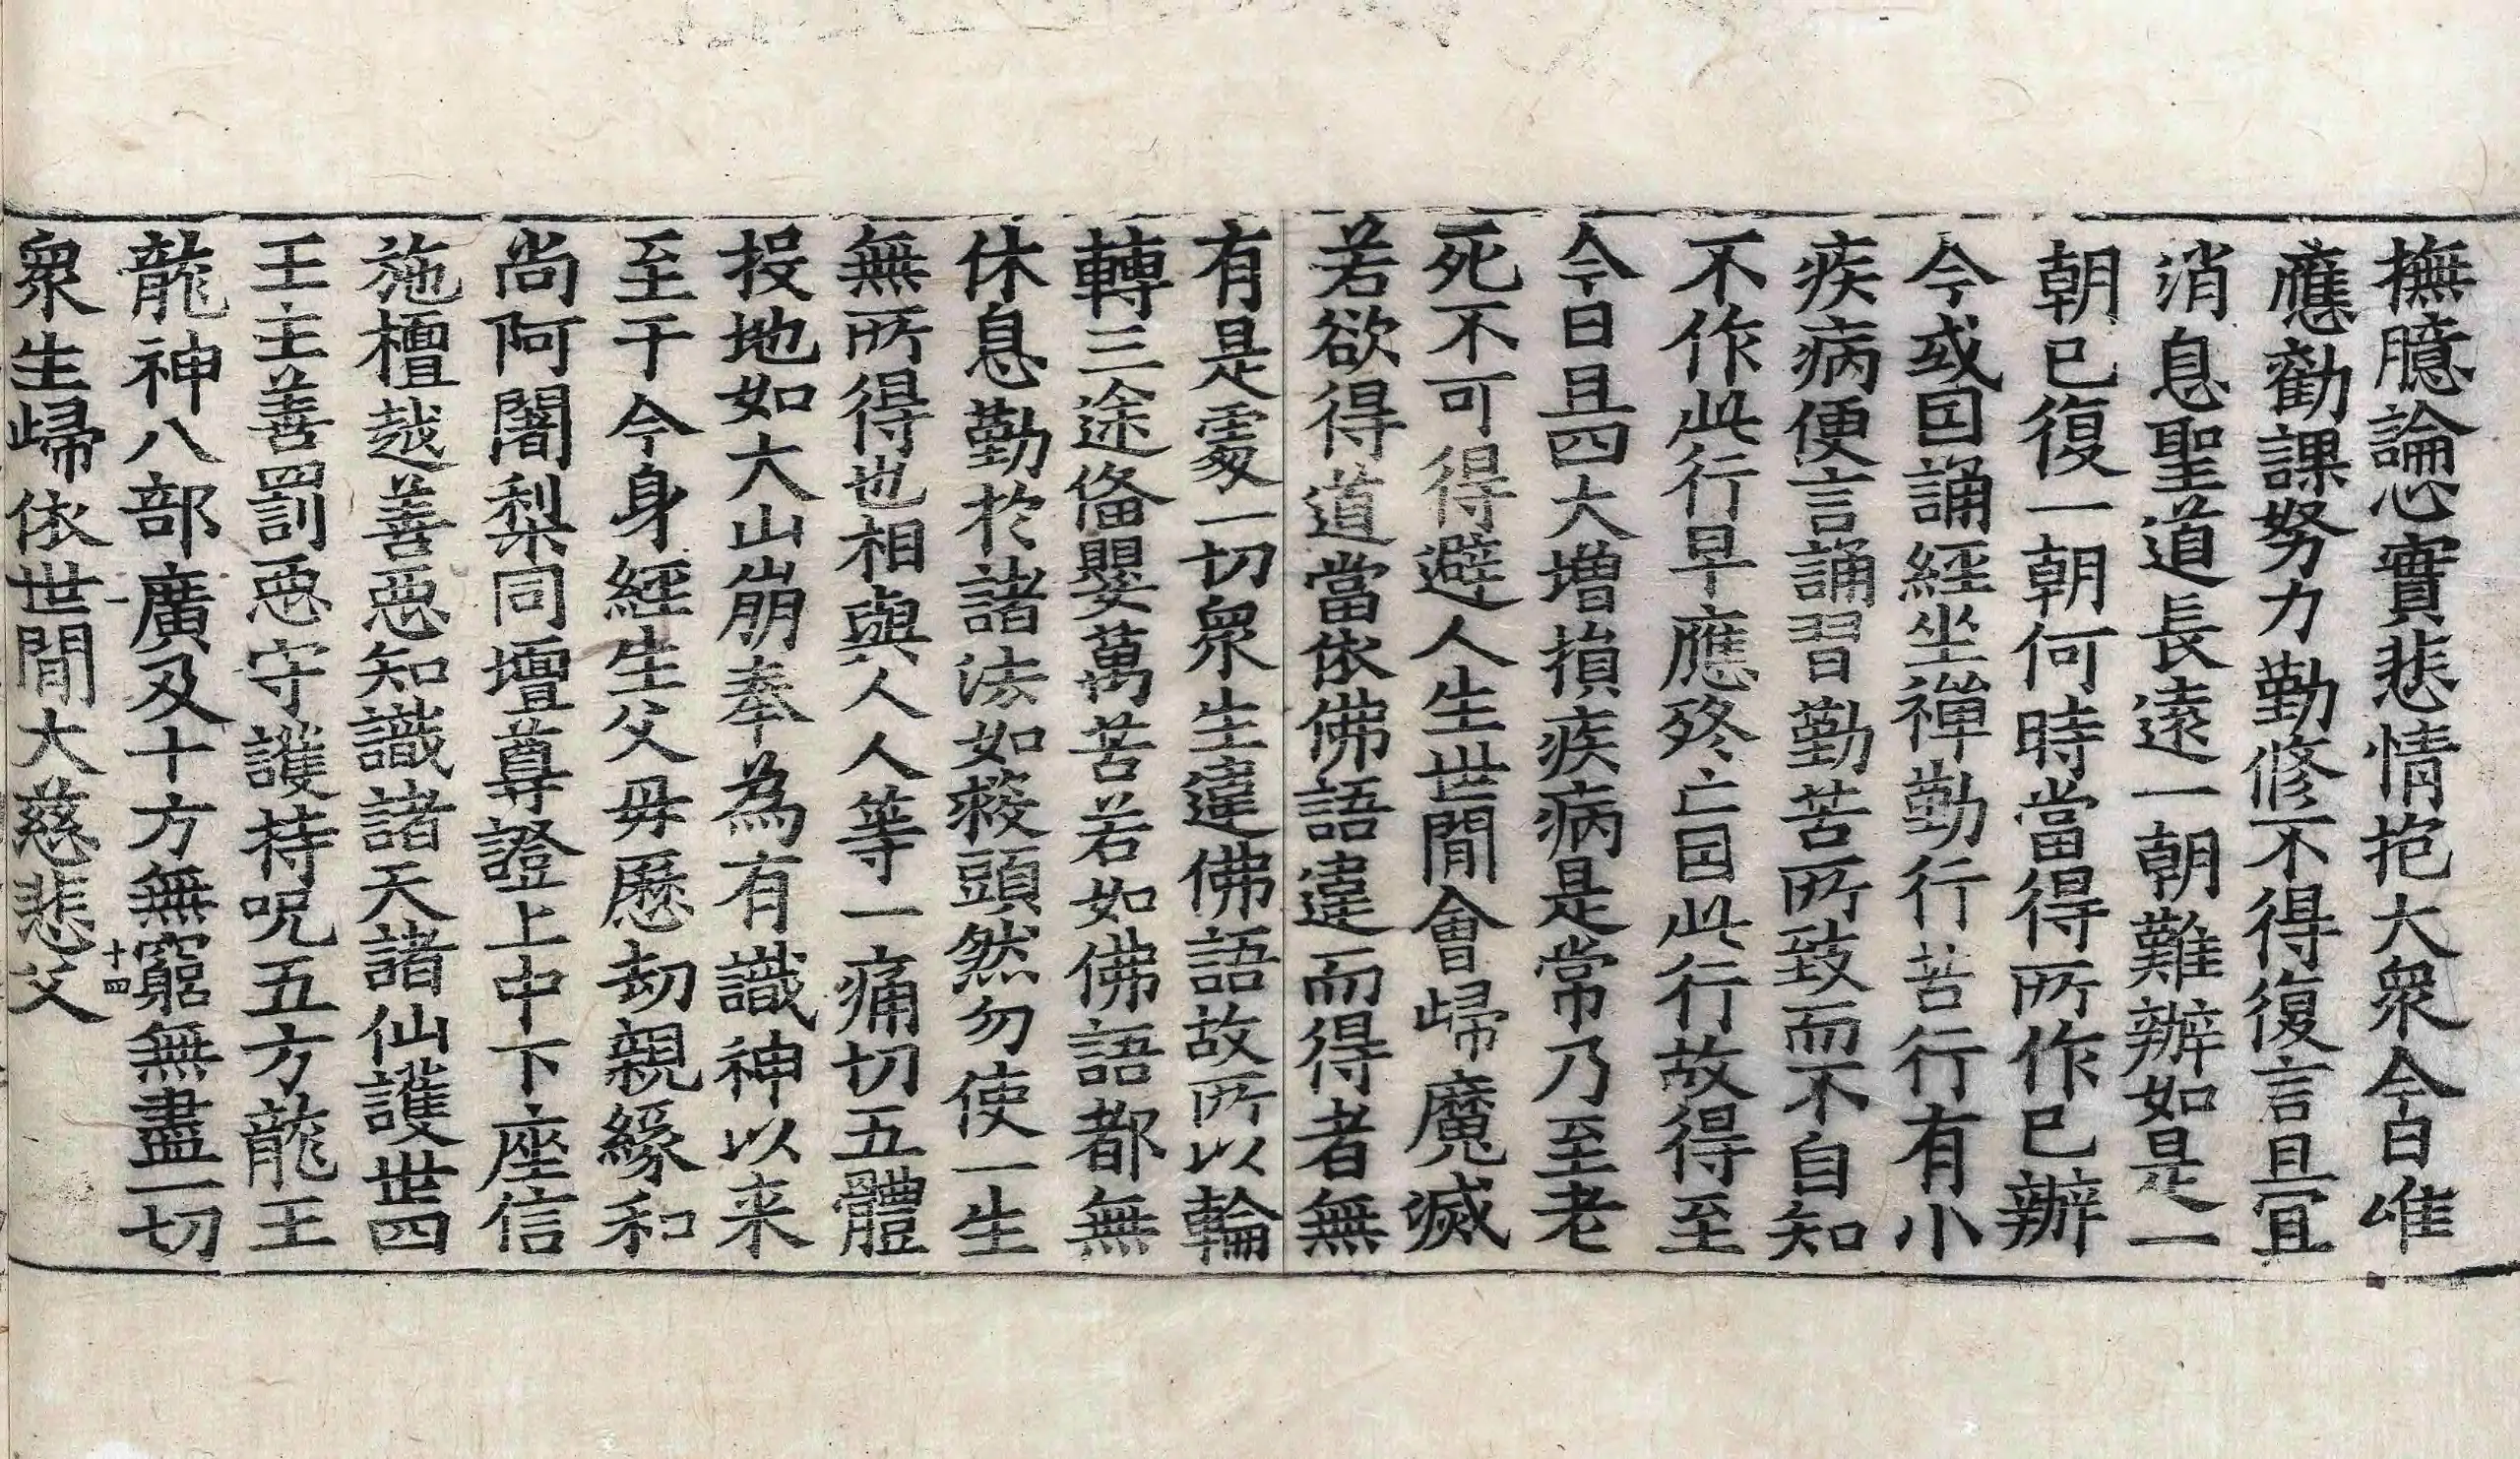 撫臆論心實悲情抱大衆今日唯
應勸課努力勤修不得復言且冝
消息聖道長遠一朝難辦如是一
朝已復一朝何時當得所作已辦
今或因誦經坐禪勤行苦行有小
疾病便言誦習勤苦所致而不自知
不作此行早應終亡因此行故得至
今日且四大增損疾病是常乃至老
死不可得避人生世間會歸魔滅
若欲得道當依佛語違而得者無
有是處一切衆生違佛語故所以輪
轉三途俻嬰萬苦若如佛語都無
休息勤於諸法如救頭然勿使一生
無所得也相與人人等一痛切五體
投地如大山崩奉為有識神以来
至于今身經生父母歷劫親緣和
尚阿闍梨同壇尊證上中下座信
施檀越善惡知識諸天諸仙護世四
王主善罰惡守護持呪五方龍王
龍神八部廣及十方無窮無盡一切
十四
衆生歸依世間大慈悲父